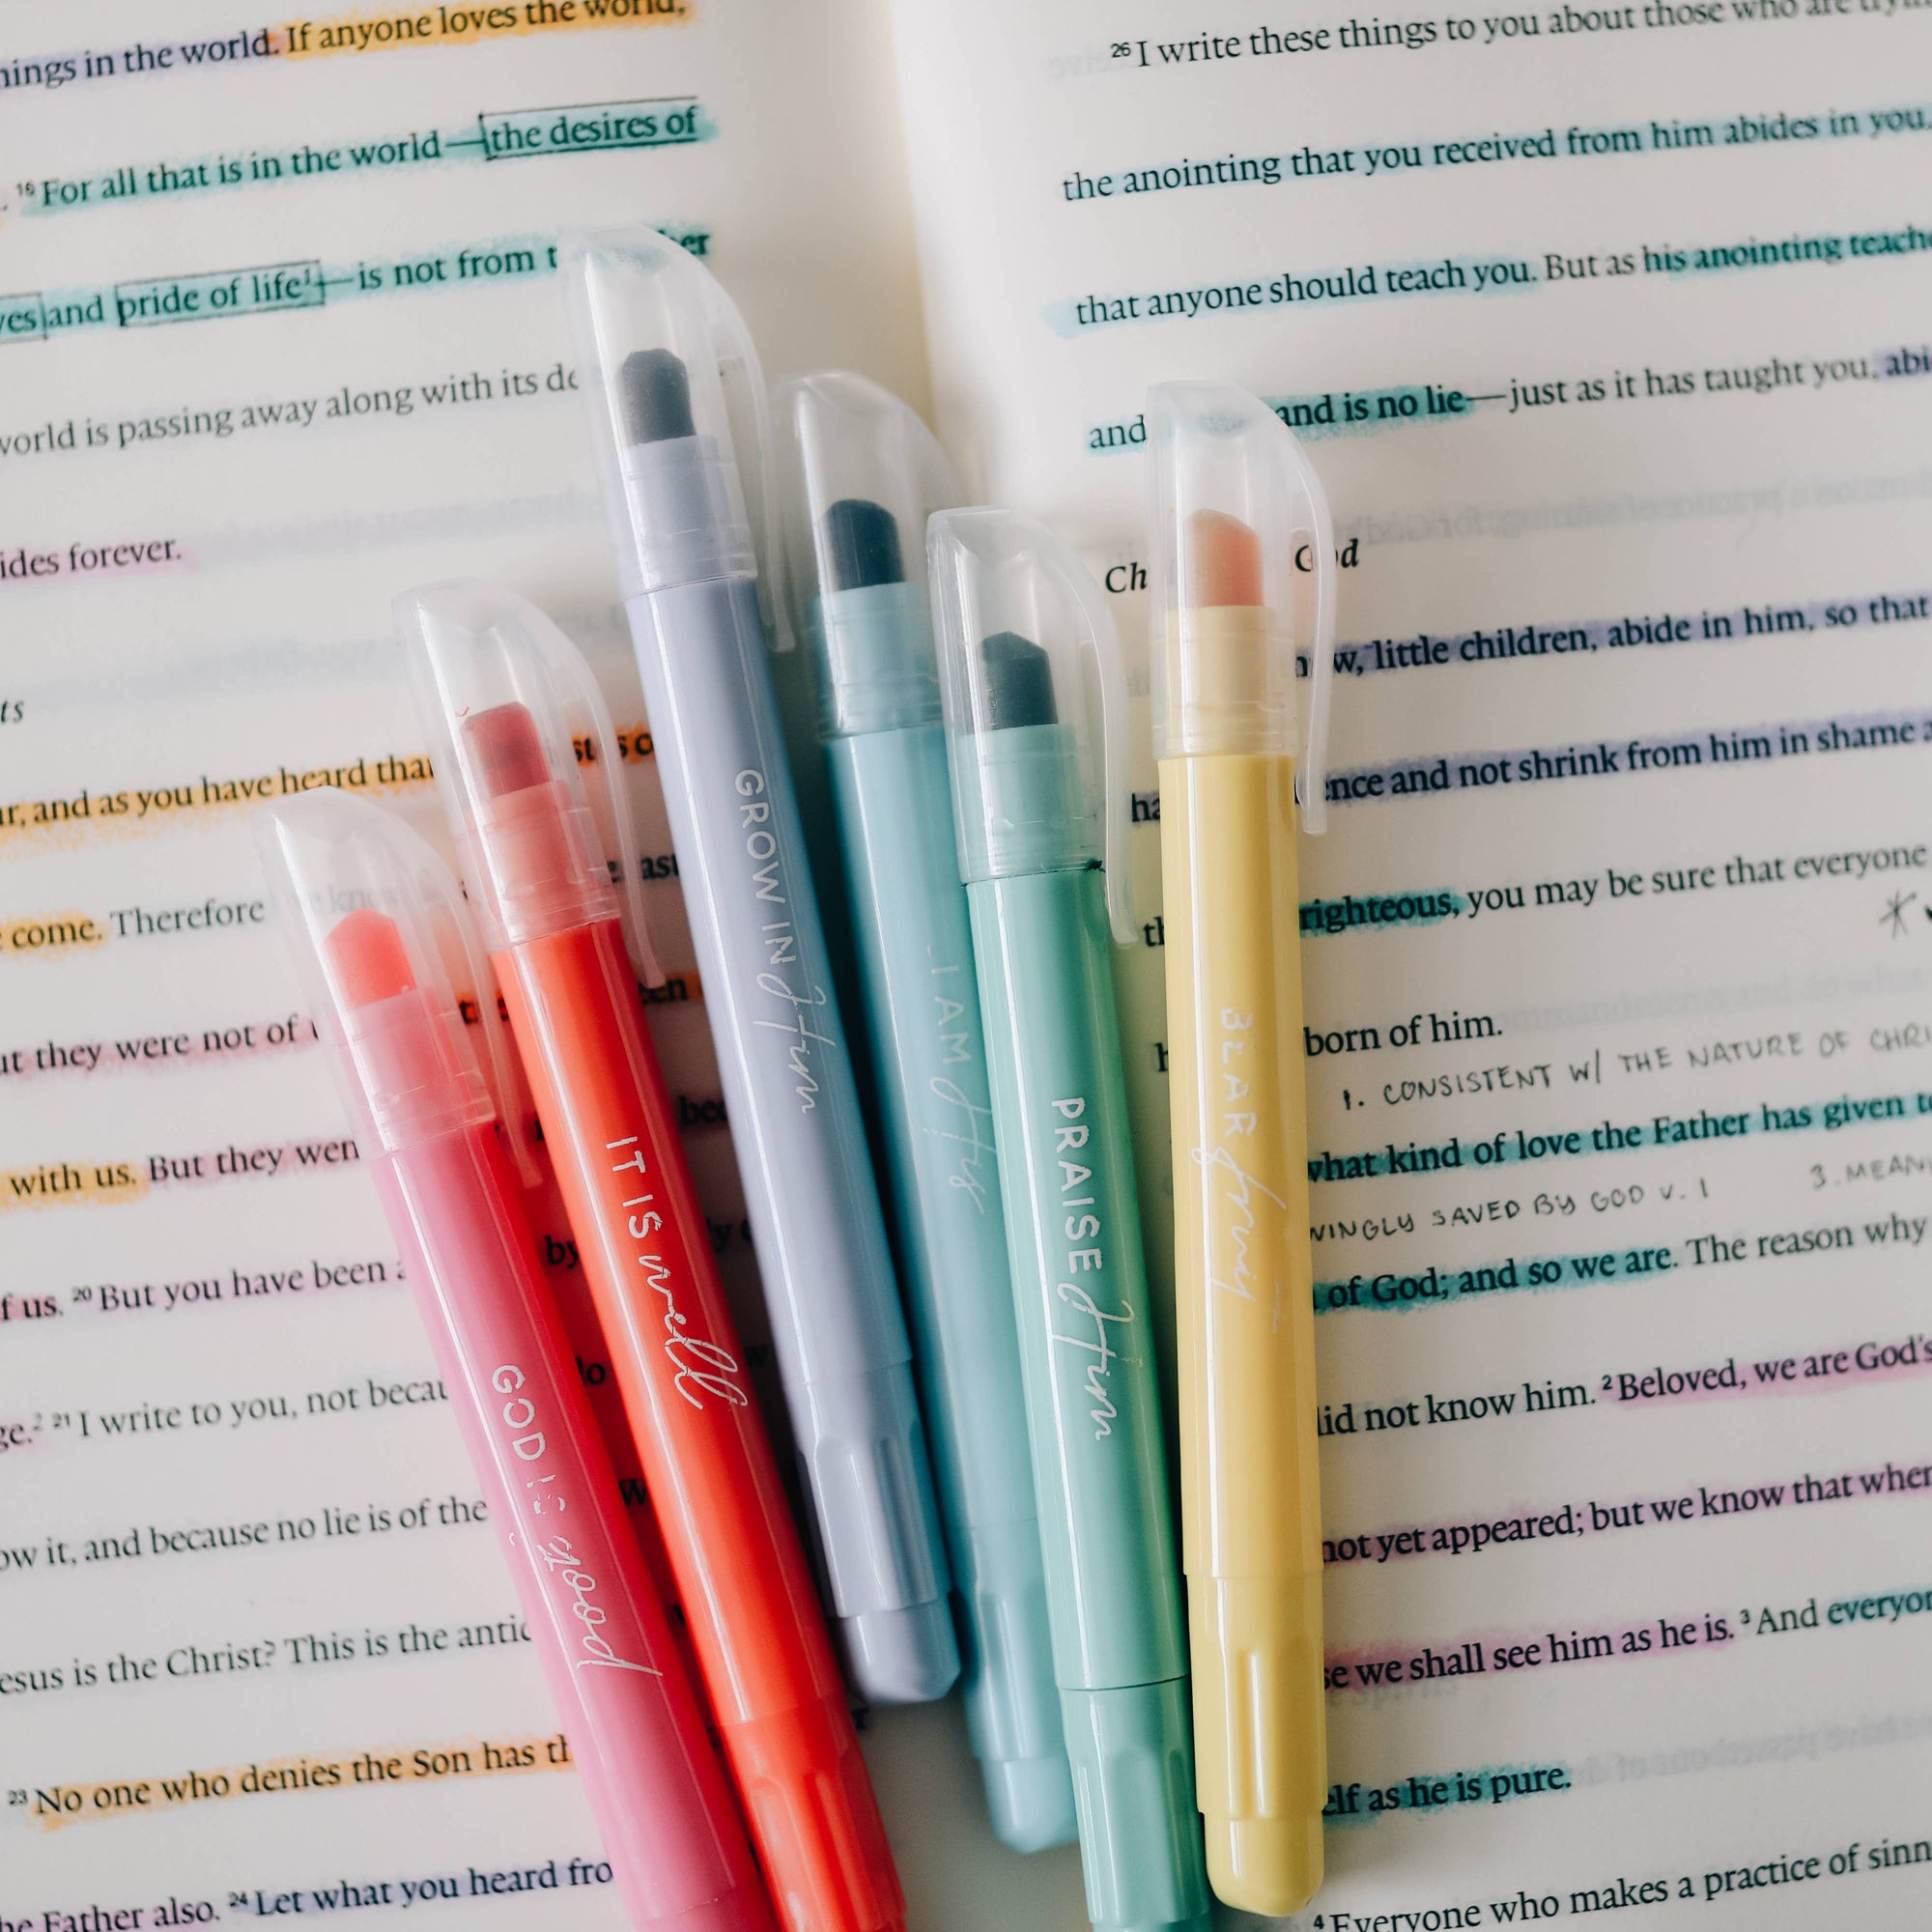 things in the world. If anyone loves the world,
. 16 For all that is in the world—the desires of
yes and pride of life1—is not from
world is passing away along with its
ides forever.
ts
and as you have heard that
come. Therefore
they were not of
with us. But they
f us. 20 But you have been
ge.2 21 I write to you, not
ow it, and because no lie is of the
esus is the Christ? This is the
23 No one who denies the Son has
he Father also. 24 Let what you heard
26 I write these things to you about those who are
the anointing that you received from him abides in you,
that anyone should teach you. But as his anointing
and and is no lie—just as it has taught you,
Ch God
little children, abide in him, so that
ence and not shrink from him in shame
righteous, you may be sure that everyone
born of him.
1. CONSISTENT W/ THE NATURE OF
what kind of love the Father has given
SAVED BY GOD V. 1 3.
of God; and so we are. The reason why
did not know him. 2 Beloved, we are God's
not yet appeared; but we know that when
we shall see him as he is. 3 And
elf as he is pure.
4 Everyone who makes a practice of
GOD IS good
IT IS well
GROW IN Him
I AM His
PRAISE Him
BEAR fruit